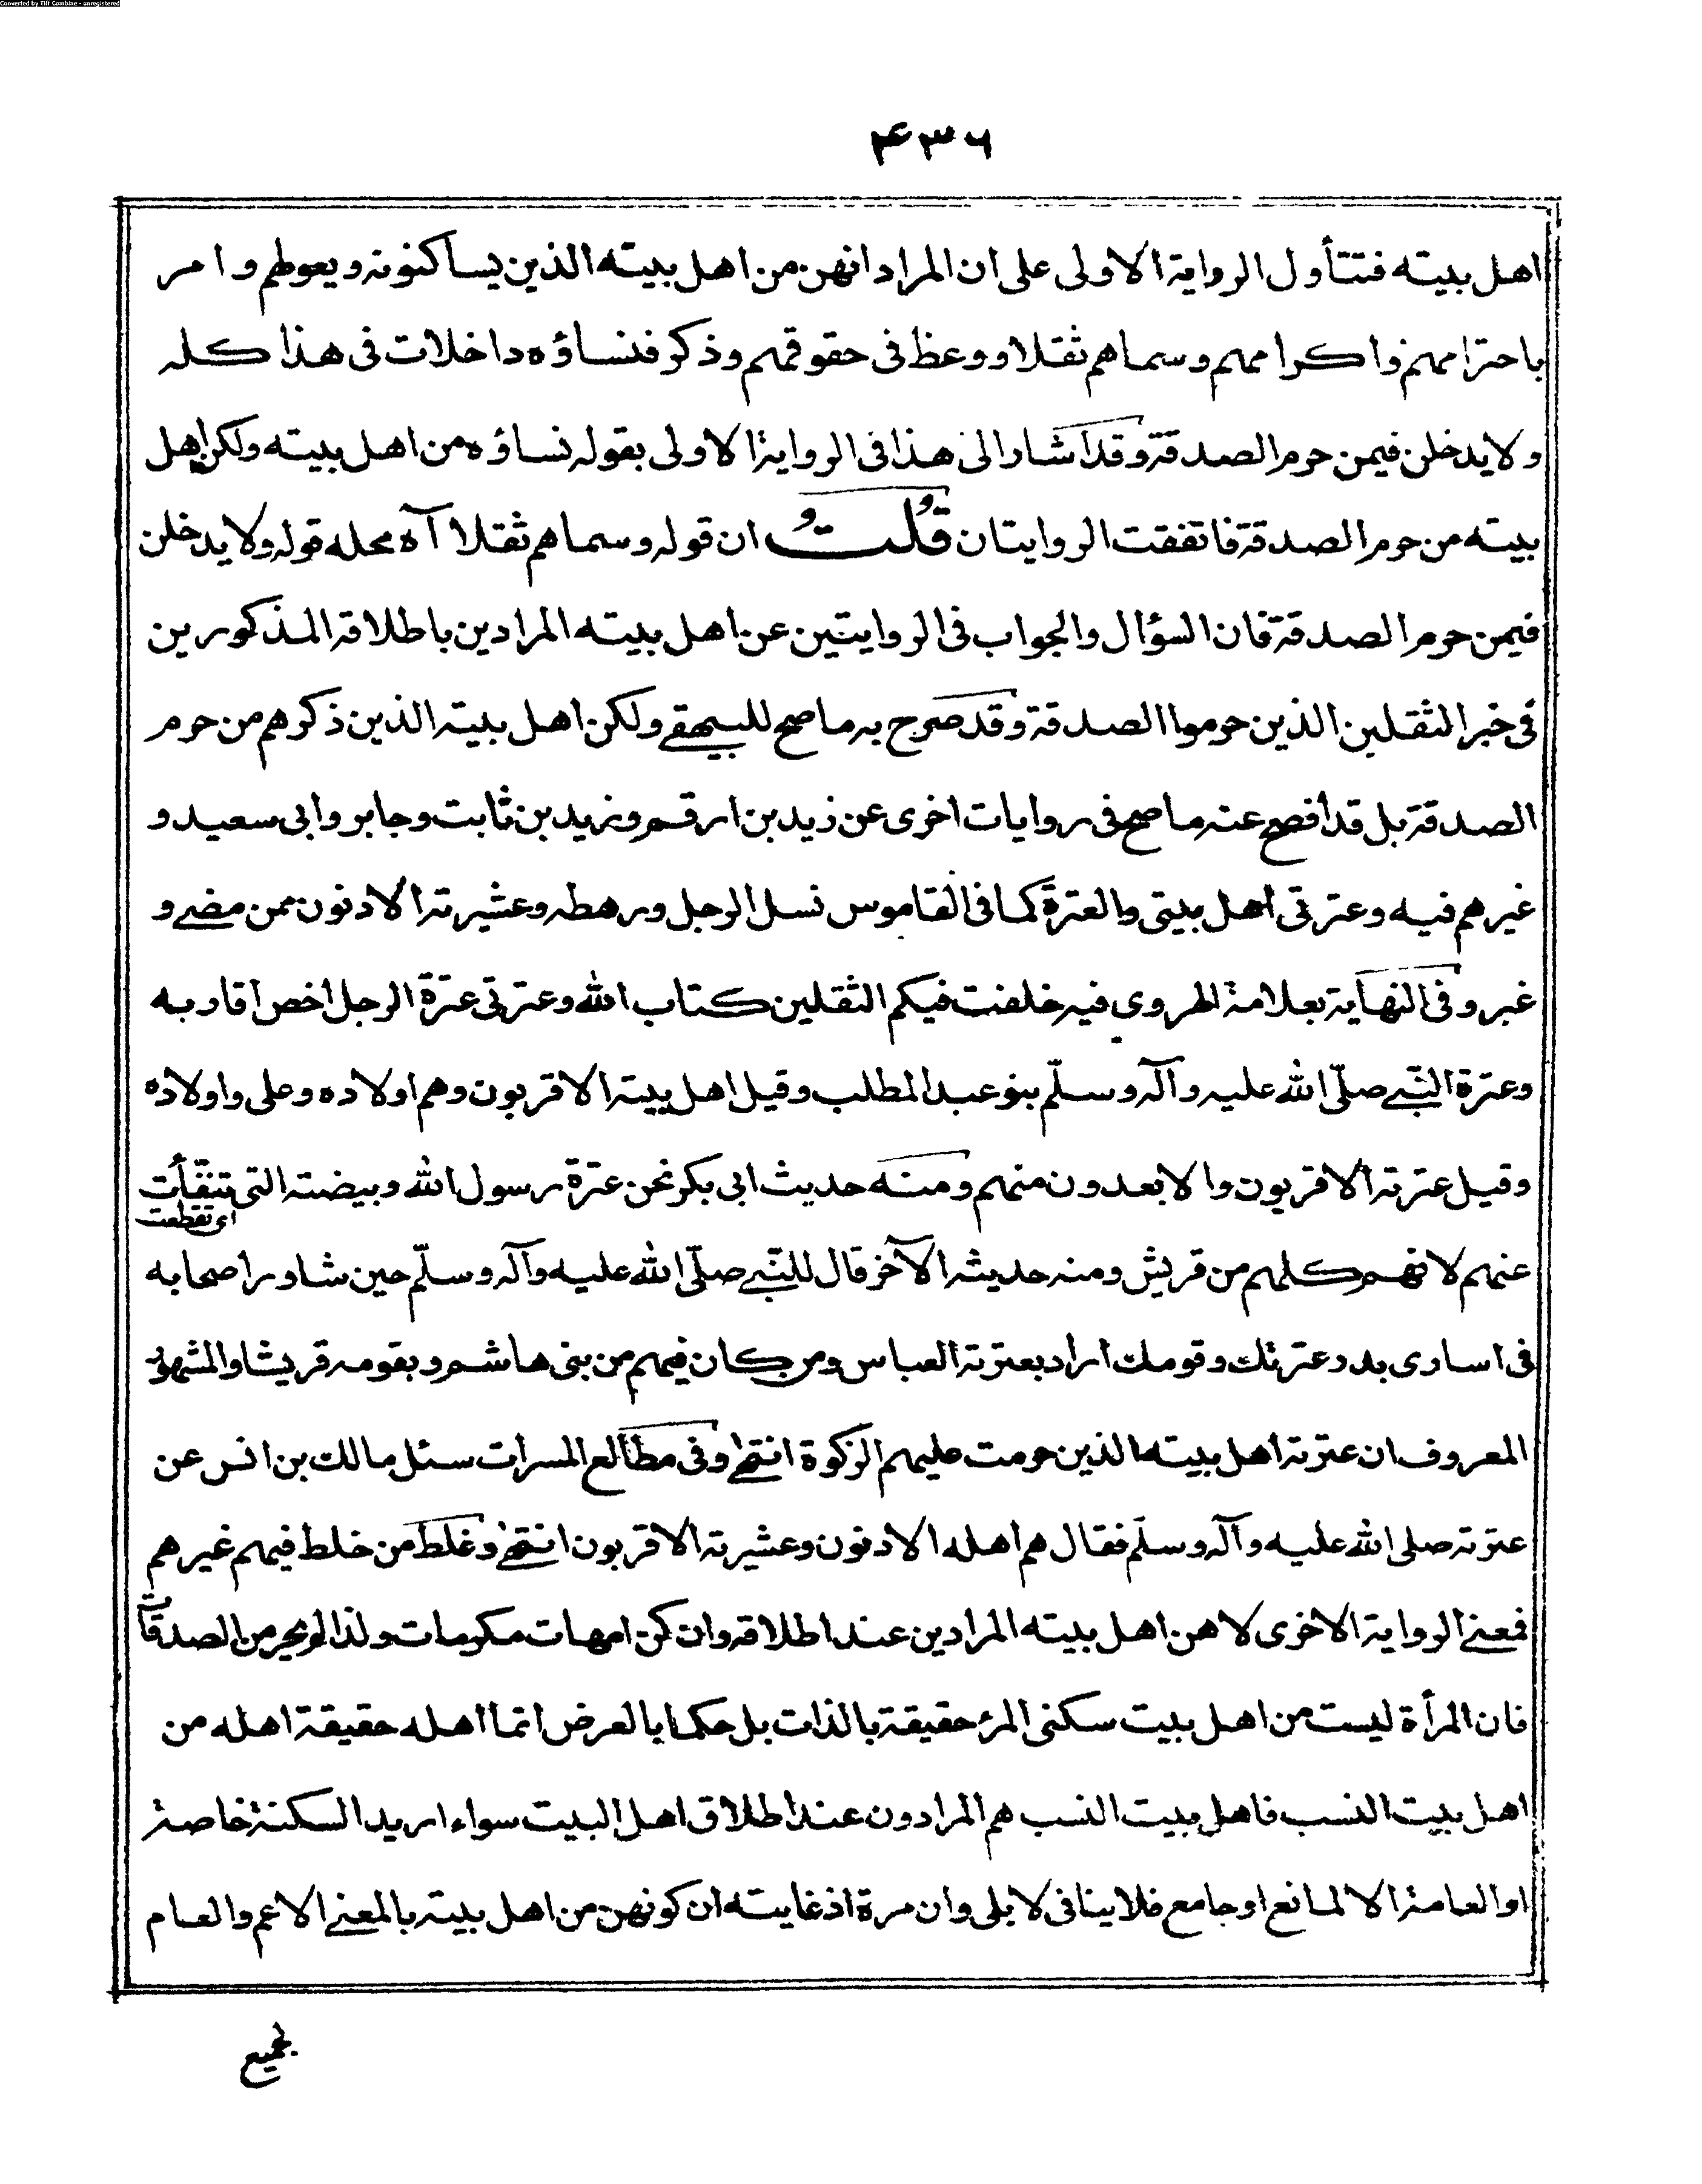 Converted by Tiff Combine - unregistered
۴۳۶
اهل بيته فتتأول الرواية الاولى على ان المراد انهن من اهل بيته الذين يساكنونه ويعولهم وامر
باحترامهم واكرامهم وسماهم ثقلا ووعظ فى حقوقهم وذكر فنساؤه داخلات فى هذا كله
ولا يدخلن فيمن حرم الصدقة وقد اشار الى هذا فى الرواية الاولى بقوله نساؤه من اهل بيته ولكن اهل
بيته من حرم الصدقة فاتفقت الروايتان قُلتُ ان قوله وسماهم ثقلا آه محله قوله ولا يدخلن
فيمن حرم الصدقة فان السؤال والجواب فى الروايتين عن اهل بيته المرادين باطلاقه المذكورين
فى خبر الثقلين الذين حرموا الصدقة وقد صرح به ما صح للبيهقے ولكن اهل بيته الذين ذكرهم من حرم
الصدقة بل قد افصح عنه ما صح فى روايات اخرى عن زيد بن ارقم وزيد بن ثابت وجابر وابى سعيد و
غيرهم فيه وعترتى اهل بيتى والعترة كما فى القاموس نسل الرجل ورهطه وعشيرته الادنون ممن مضے و
غبر وفى النهاية بعلامة الهروي فيه خلفت فيكم الثقلين كتاب الله وعترتى عترة الرجل اخص اقاربه
وعترة النّبے صلّى الله عليه وآله وسلّم بنو عبد المطلب وقيل اهل بيته الاقربون وهم اولاده وعلى واولاده
وقيل عترته الاقربون والابعدون منهم ومنه حديث ابى بكر نحن عترة رسول الله وبيضته التى تنفّأت
اى تقطعت
عنهم لانهم كلهم من قريش ومنه حديثه الآخر قال للنّبے صلّى الله عليه وآله وسلّم حين شاور اصحابه
فى اسارى بدر عترتك وقومك اراد بعترته العباس ومن كان فيهم من بنى هاشم وبقومه قريشا والمشهور
المعروف ان عترته اهل بيته الذين حرمت عليهم الزكوة انتهے وفى مطالع المسرات سئل مالك بن انس عن
عترته صلى الله عليه وآله وسلّم فقال هم اهله الادنون وعشيرته الاقربون انتهے وغلط من خلط فيهم غيرهم
فمعنے الرواية الاخرى لا هن اهل بيته المرادين عند اطلاقه وان كن امهات مكرمات ولذا لم يحرمن الصدقات
فان المرأة ليست من اهل بيت سكنى المرء حقيقة بالذات بل حكما بالعرض انما اهله حقيقة اهله من
اهل بيت النسب فاهل بيت النسب هم المرادون عند اطلاق اهل البيت سواء اريد السكنة خاصة
او العامة الا لمانع او جامع فلا ينافى لا بلى وان مرة اذ غايته ان كونهن من اهل بيته بالمعنے الاعم والعام
لجميع